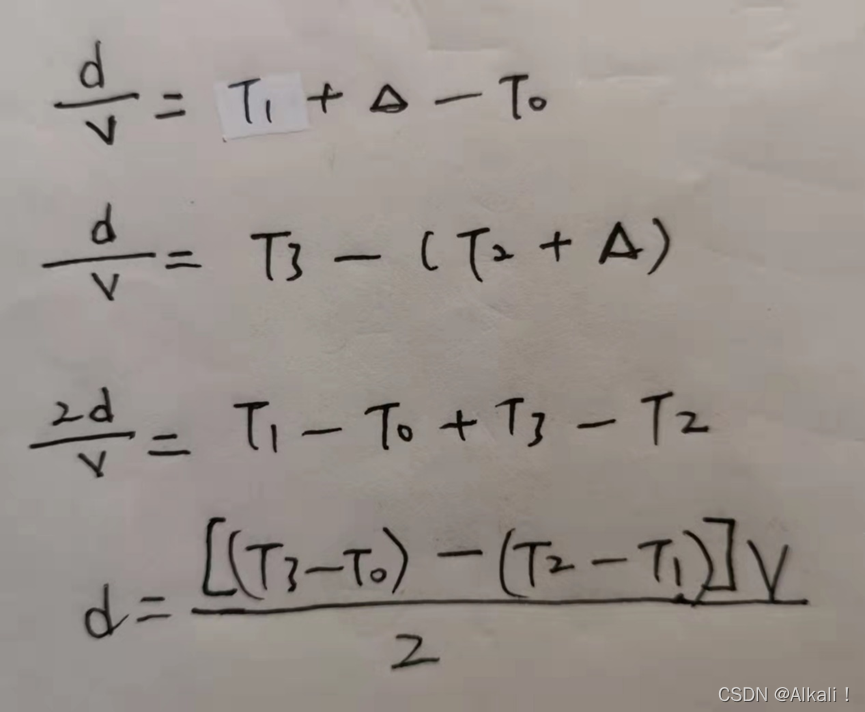 d/v = T₁ + Δ − T₀
d/v = T₃ − (T₂ + Δ)
2d/v = T₁ − T₀ + T₃ − T₂
d = [(T₃−T₀) − (T₂−T₁)]V/2
CSDN @Alkali！